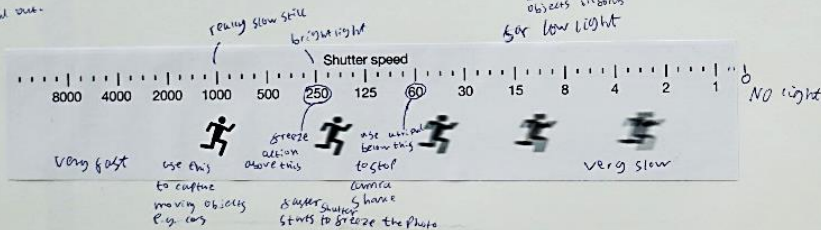 out.
objects
really slow still
bright light
for low light
Shutter speed
8000 4000 2000 1000 500 250 125 60 30 15 8 4 2 1
NO light
very fast
use this
to captue
moving objects
e.g. cars
freeze
action
above this
use
below this
to stop
camra
shake
faster shutter
starts to freeze the photo
very slow